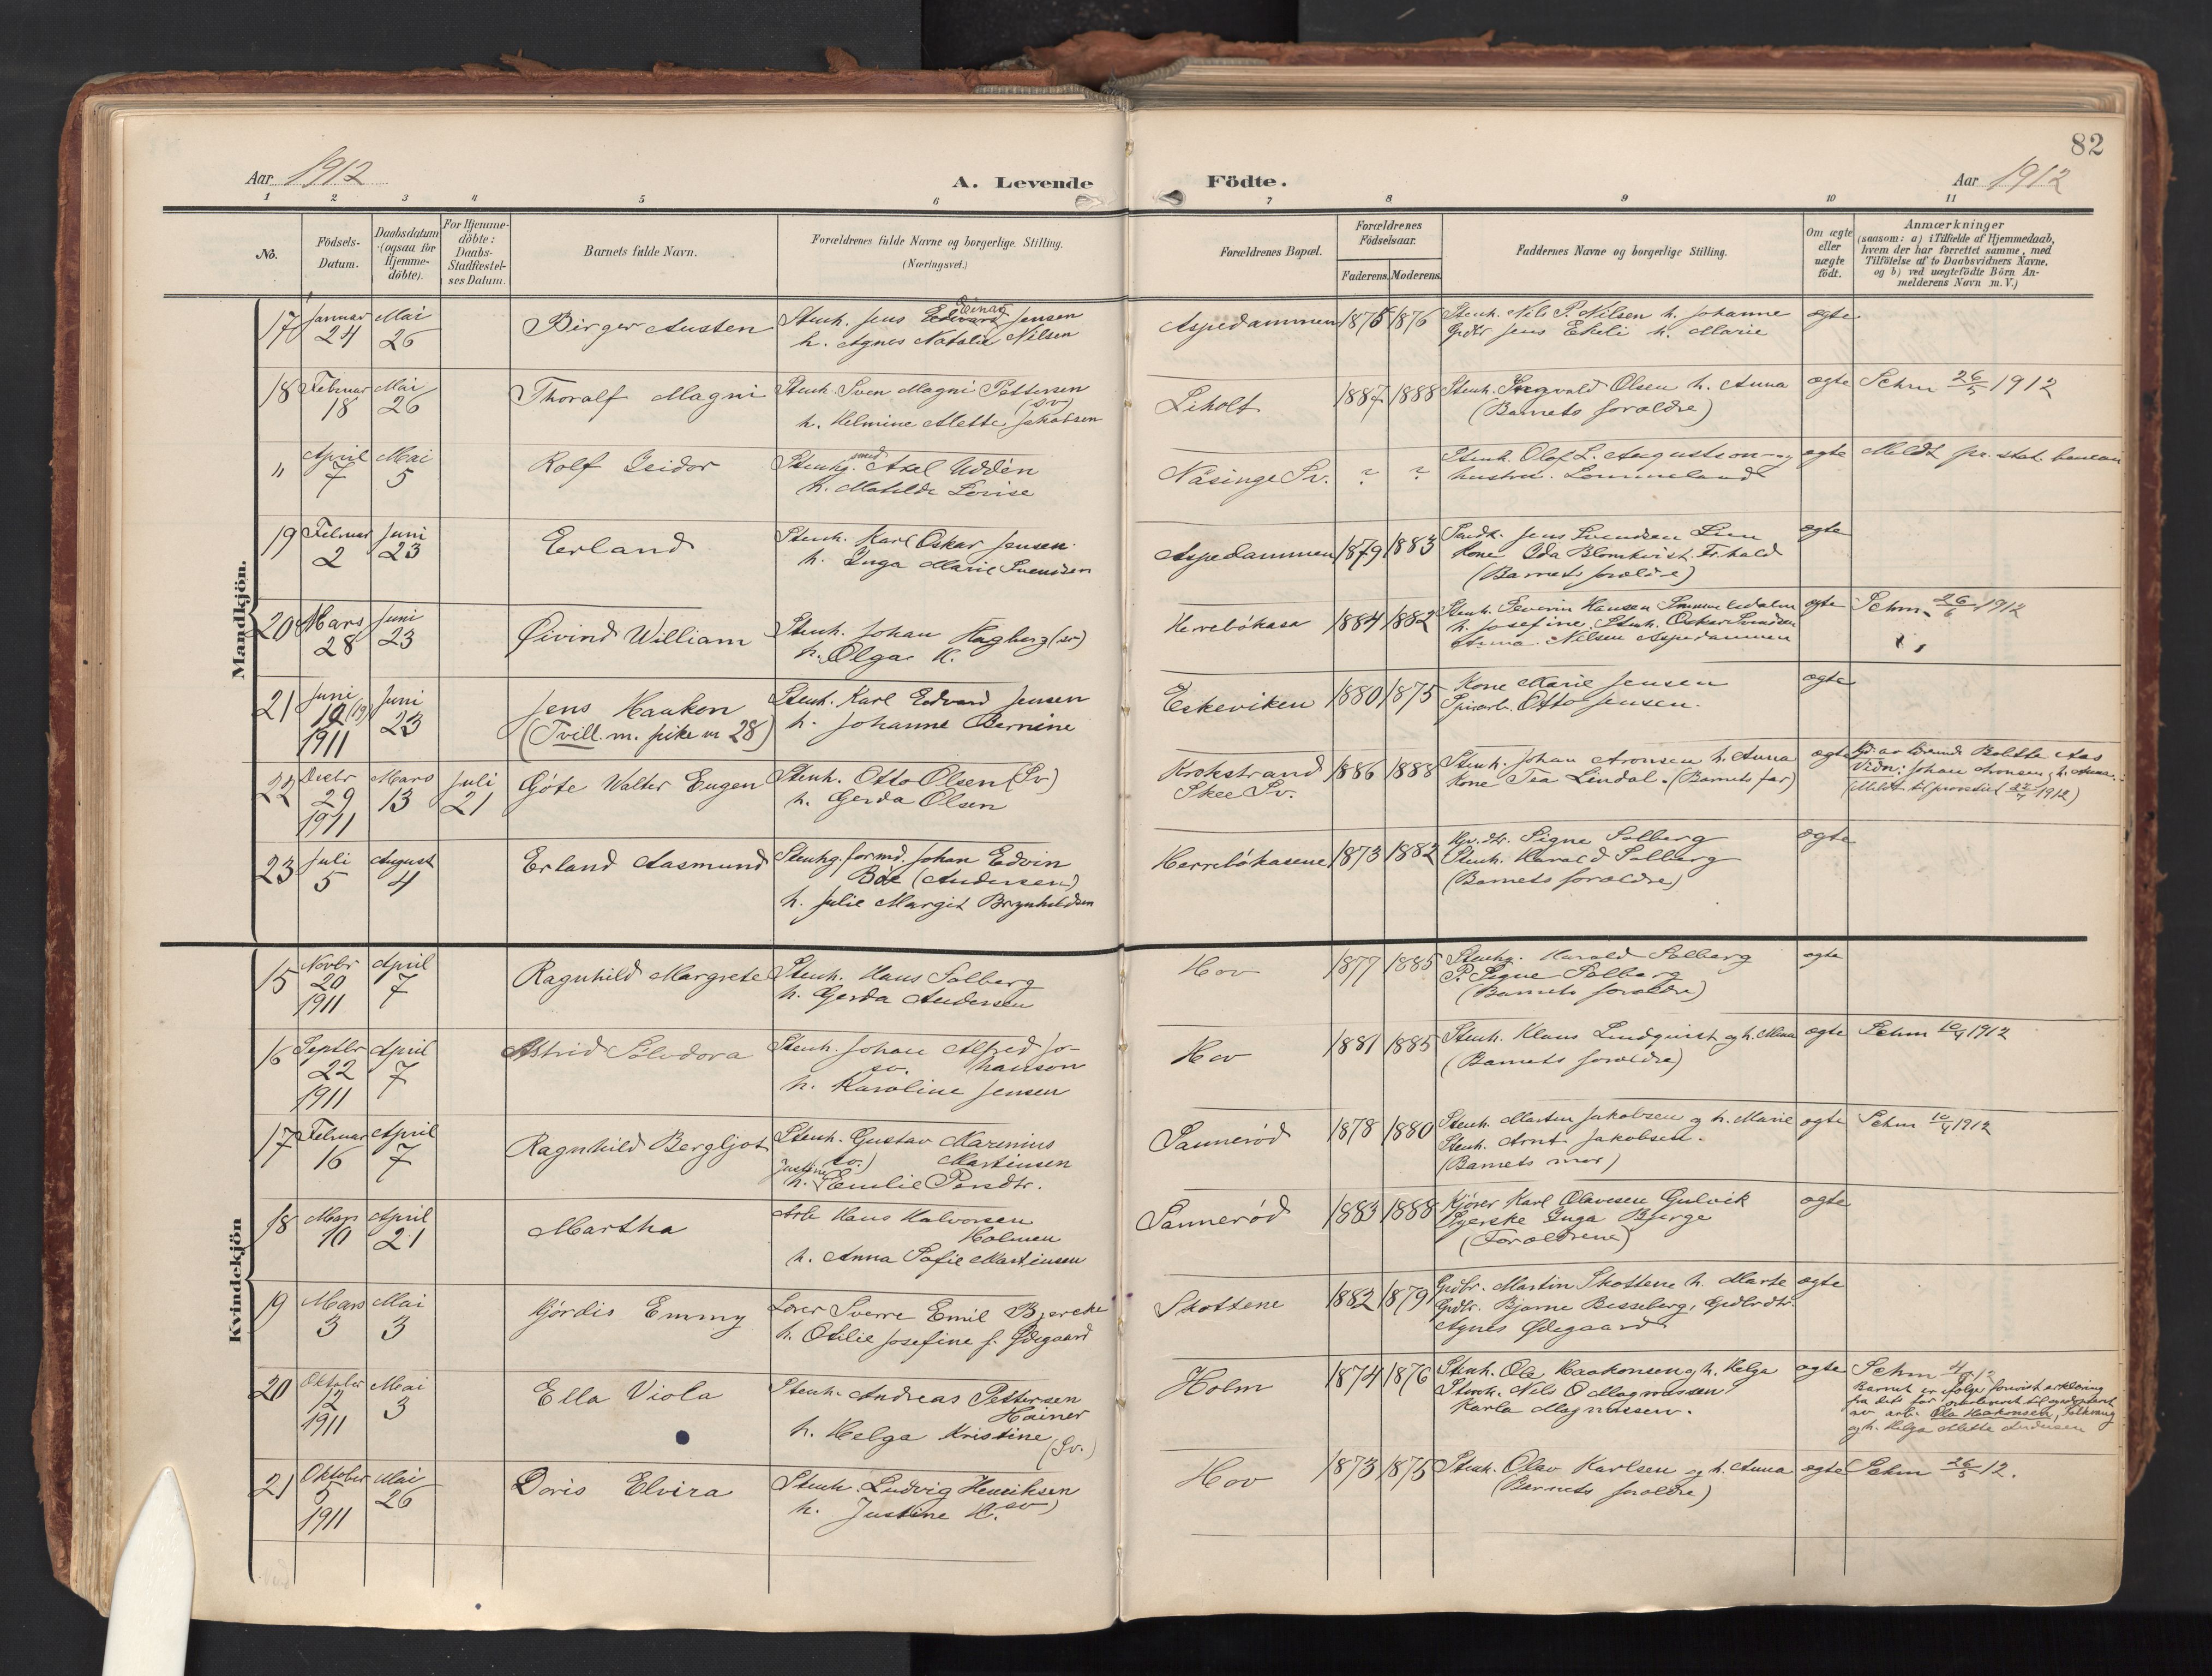 82
Aar 1912
A. Levende
Födte.
Aar 1912
1 2 3 4 5 6 7 8 9 10 11
No.
Födsels-
Datum.
Daabsdatum
(ogsaa for
Hjemme-
döbte).
For Hjemme-
döbte:
Daabs-
Stadfæstel-
ses Datum.
Barnets fulde Navn.
Forældrenes fulde Navne og borgerlige Stilling.
(Næringsvei.)
Forældrenes Bopæl.
Forældrenes
Födselsaar.
Faderens. Moderens.
Faddernes Navne og borgerlige Stilling.
Om ægte
eller
uægte
födt.
Anmærkninger
(saasom: a) i Tilfælde af Hjemmedaab,
hvem der har forrettet samme, med
Tilföielse af to Daabsvidners Navne,
og b) ved uægtefödte Börn An-
melderens Navn m. V.)
Mandkjön.
17 Januar 24 Mai 26 Birger Austen
Stenh. Jens Edvard Einar Jensen
h. Agnes Natalie Nilsen
Aspedammen 1875 1876
Stenh. Nils P. Nilsen h. Johanne
Grdbr Jens Ekeli h. Marie
ægte
18 Februar 18 Mai 26 Thoralf Magni
Stenh. Sven Magni Pettersen
(sv)
h. Helmine Alette Jakobsen
Liholt 1887 1888
Stenh. Ingvald Olsen h. Anna
(Barnets foreldre)
ægte Schm 26/5 1912
" April 7 Mai 5 Rolf Geidor
Stenhg. smed Axel Uddén
h. Matilde Lovise
Näsinge Sv. ? ?
Stenh. Olof L. Augustson og
hustru. Lommeland
ægte Meldt pr. stat. bureau
19 Februar 2 Juni 23 Eerland
Stenh. Karl Oskar Jensen
h. Inga Marie Svendsen
Aspedammen 1879 1883
Jens Svendsen Lien
Kone Ida Blomkvist. Fr.hald
(Barnets foreldre)
ægte
20 Mars 28 Juni 23 Øivind William
Stenh. Johan Hagberg (sv)
h. Olga K.
Herrebökasa 1884 1882
Stenh. Severin Hansen
h. Josefine. Stenh. Oskar Svendsen
Anna Nilsen Aspedammen
ægte Schm. 26/6 1912
21 Juni 12 (13) 1911 Juni 23 Jens Haakon
(Tvill. m. pike nr 28)
Stenh. Karl Edvard Jensen
h. Johanne Bernine
Eskeviken 1880 1875
Kone Marie Jensen
Otto Jensen.
ægte
22 Decbr 29 1911 Mars 13 Juli 21 Göte Walter Eugen
Stenh. Otto Olsen (Sv)
h. Gerda Olsen
Krokstrand
Skee Sv.
1886 1888
Stenh. Johan Aronsen h. Anna
Kone Tea Lindal. (Barnets far)
ægte Hjd. av lærerinde Bolette Aas
Vidn: Johan Aronsen, h. Anna.
(Meldt til provstiet 22/7 1912)
23 Juli 5 August 4 Erland Aasmund
Stenhg.formd. Johan Edvin
Böe (Andersen)
h. Julie Margit Brynhildsen
Herrebökasene 1873 1882
Signe Solberg
Stenh. Harald Solberg
(Barnets foreldre)
ægte
Kvindekjön
15 Novbr 20 1911 April 7 Ragnhild Margrete
Stenh. Hans Solberg
h. Gerda Andersen
Hov 1877 1885
Stenhg. Harald Solberg
P. Signe Solberg
(Barnets foreldre)
ægte
16 Septbr 22 1911 April 7 Astrid Solvdora
Stenh. Johan Alfred Jo-
sv. hanson
h. Karoline Jensen
Hov 1881 1885
Stenh. Klaus Lindqvist og h. Mina
(Barnets foreldre)
ægte Schm 10/4 1912
17 Februar 16 April 7 Ragnhild Bergljot
Stenh. Gustav Marinius
sv.) Martinsen
h. Justine Emilie
Sannerød 1878 1880
Stenh. Martin Jakobsen og h. Marie
Stenh. Arnt Jakobsen.
(Barnets mor)
ægte Schm 10/4 1912
18 Mars 10 April 21 Martha
Arb Hans Halvorsen
Holmen
h. Anna Sofie Martinsen
Sannerød 1883 1888
Kjører Karl Olavesen Gulvik
Syerske Inga Bjerge
(Foreldrene)
ægte
19 Mars 3 Mai 3 Hjördis Emmy
Lærer Sverre Emil Bjercke
h. Otilie Josefine f. Ødegaard
Skottene 1882 1879
Grdbr. Martin Skottene h. Marte
Grdbr. Bjarne Besseberg, Grdbrdtr.
Agnes Ødegaard
ægte
20 Oktober 12 1911 Mai 3 Ella Viola
Stenh. Andreas Pettersen
Hainer
h. Helga Kristine (Sv.)
Holm 1874 1876
Stenh. Ole Haakonsen og h. Helga
Stenh. Nils O Magnussen
Karla Magnussen.
ægte Schm 4/5 12
Barnet er ifølge forevist erklæring
fra dets far
av arb. Ola Haakonsen,
og h. Helga Alette Andersen
21 Oktober 5 1911 Mai 26 Doris Elvira
Stenh. Ludvig Henriksen
h. Justine H. sv)
Hov 1873 1875
Stenh. Olav Karlsen og h. Anna
(Barnets foreldre)
ægte Schm 26/5 12.